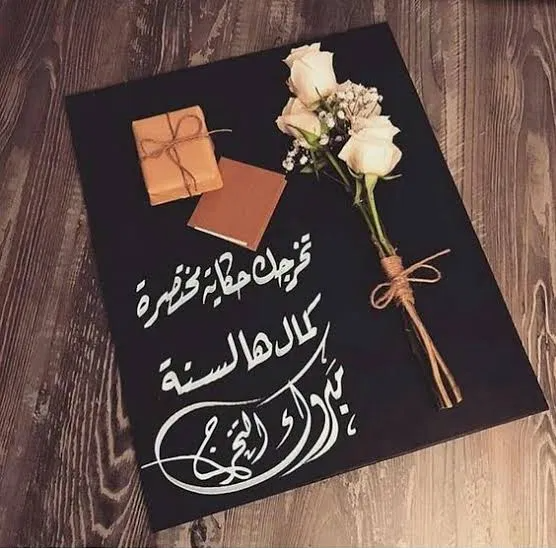 تخرجك حكاية مختصرة
كمال هالسنة
مبروك التخرج